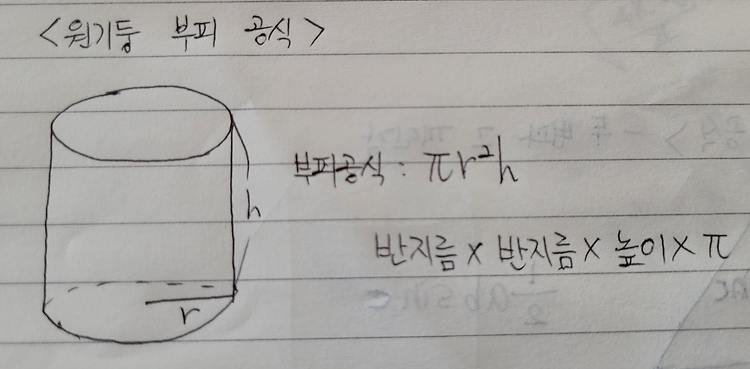 <원기둥 부피 공식>
h
부피공식 : πr²h
반지름 x 반지름 x 높이 x π
r